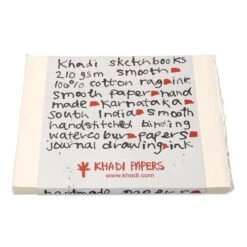 khadi sketchbooks
210 gsm smooth
100% cotton rag ink
smooth paper hand
made karnataka
south India smooth
handstitched binding
watercolour papers
journal drawing ink
KHADI PAPERS
www.khadi.com
handmade papers